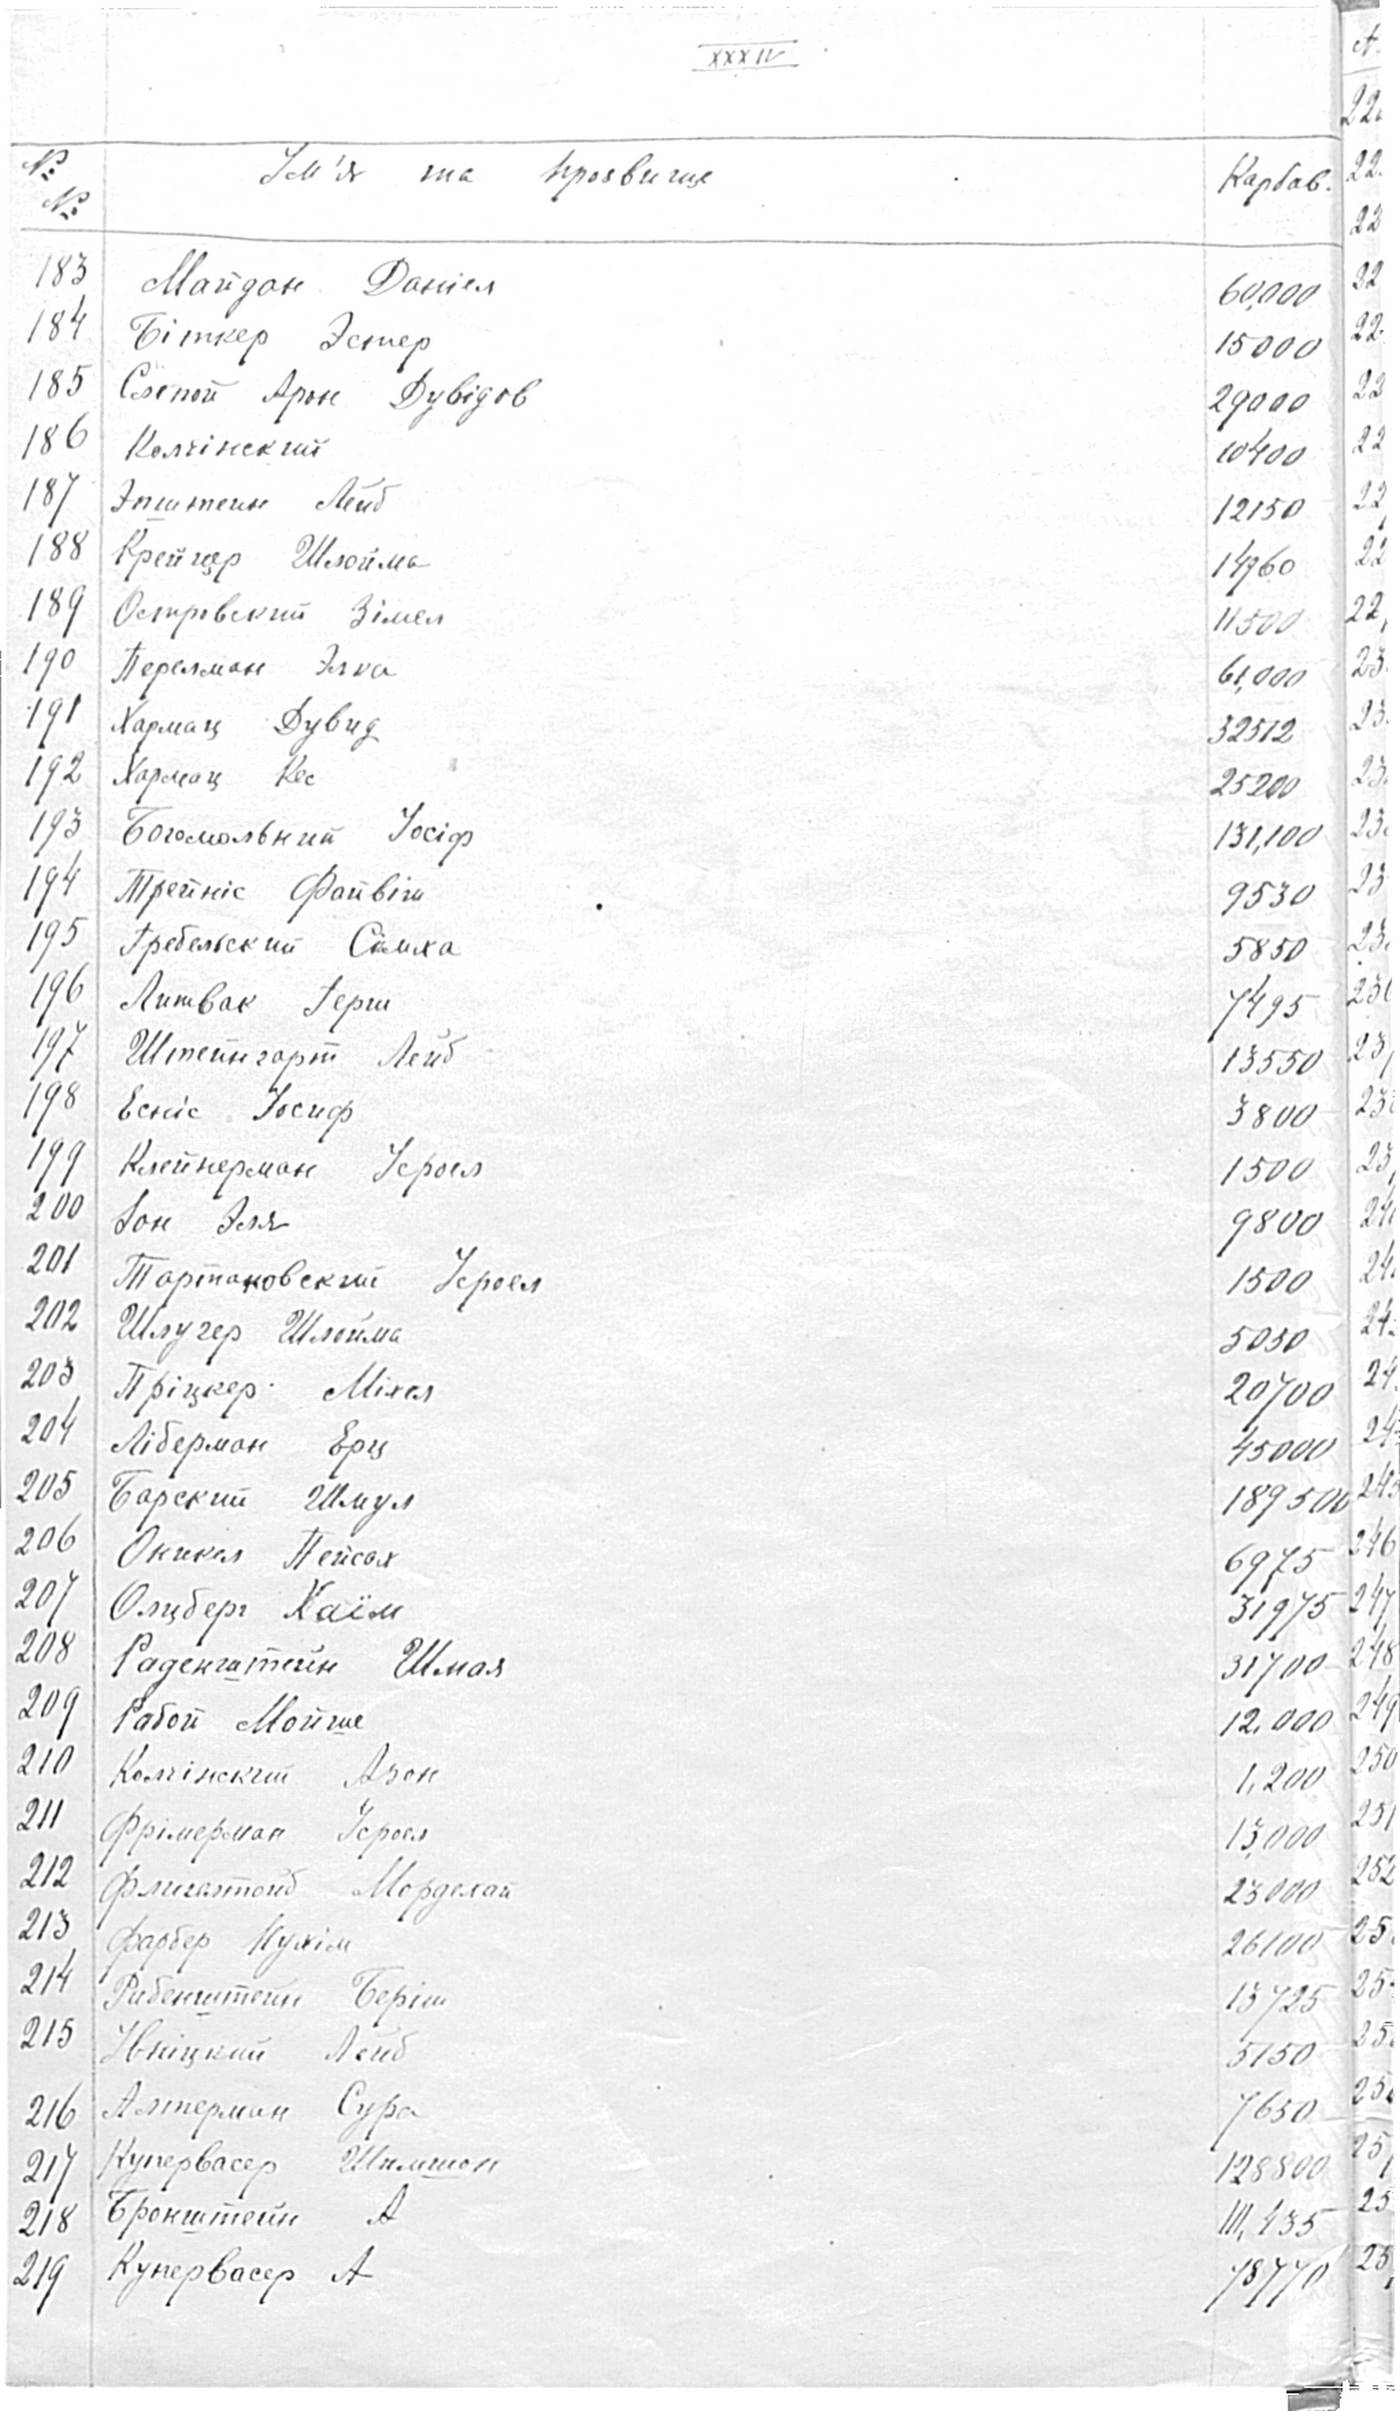 XXXIV
№ № Ім'я та прозвище Карбов.
183 Майдан Даніел 60,000
184 Біткер Эстер 15000
185 Слепой Арон Дувідов 29000
186 Колчінский 10400
187 Эпштеин Лейб 12150
188 Крейцер Шлойма 14960
189 Островский Зімел 11500
190 Перелман Элка 61,000
191 Хармац Дувид 32512
192 Хармац Кес 25200
193 Богомольний Іосіф 131,100
194 Трейніс Файвіш 9530
195 Гребельский Сімха 5850
196 Литвак Герш 7495
197 Штейнгарт Лейб 13550
198 Есніс Іосиф 3800
199 Клейнерман Ісроел 1500
200 Гон Эля 9800
201 Тартаковский Ісроел 1500
202 Шлугер Шлойма 5050
203 Пріцкер Міхел 20700
204 Ліберман Ерц 45000
205 Барский Шмул 189500
206 Окикел Пейсах 6975
207 Олцберг Хаїм 31975
208 Раденштейн Шмая 31700
209 Рабой Мойше 12,000
210 Колчінский Азон 1,200
211 Фрімерман Ісроел 13,000
212 Мордехай 23000
213 Фарбер Нухім 26100
214 Рибенштейн Беріш 13725
215 Івніцкий Лейб 5150
216 Алтерман Сура 7650
217 Купервасер Шимшон 128800
218 Бронштейн А 111,435
219 Купервасер А 78770